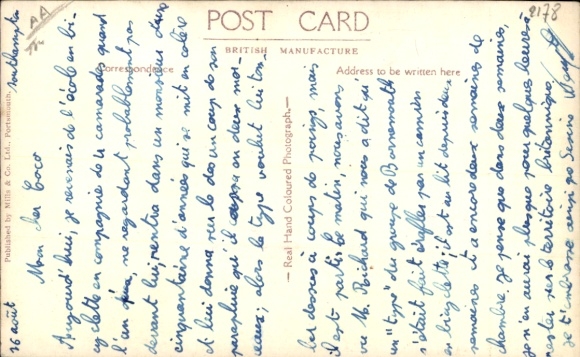 POST CARD
BRITISH MANUFACTURE
Correspondence
Address to be written here
Published by Mills & Co. Ltd., Portsmouth.
— Real Hand Coloured Photograph. —
2178
AA
16 août Southampton
Mon cher Coco
Aujourd'hui, je revenais de l'école en bi-
cyclette en compagnie de 2 camarades quand
l'un, ne regardant probablement pas
devant lui, rentra dans un monsieur d'une
cinquantaine d'années qui se mit en colère
et lui donna sur le dos un coup de son
parapluie qu'il cassa en deux mor-
ceaux; alors le type voulut lui tom-
ber dessus à coups de poings, mais
il est parti. Ce matin, nous avons
vu M. Richard qui nous a dit qu'
un "type" du groupe de Bornemouth
s'était fait érafler par un camion
en bicyclette; il est au lit depuis deux
semaines et a encore deux semaines de
chambre. Je pense que dans deux semaines,
je n'en aurai plus que pour quelques heures à
rester sur le territoire britannique.
Je t'embrasse ainsi que